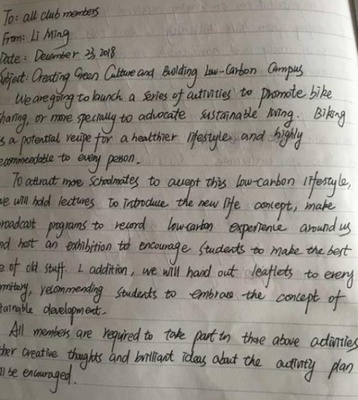 To: all club members
From: Li Ming
Date: December 23, 2018
bject: Creating Green Culture and Building Low-Carbon Campus
We are going to launch a series of activities to promote bike
haring, or more specially to advocate sustainable living. Biking
s a potential recipe for a healthier lifestyle and highly
ecommendable to every person.
To attract more schoolmates to accept this low-carbon lifestyle,
we will hold lectures to introduce the new life concept, make
roadcast programs to record low-carbon experience around us
nd host an exhibition to encourage students to make the best
e of old stuff. I addition, we will hand out leaflets to every
rmitory, recommending students to embrace the concept of
tainable development.
All members are required to take part in those above activities
ther creative thoughts and brilliant ideas about the activity plan
ll be encouraged.